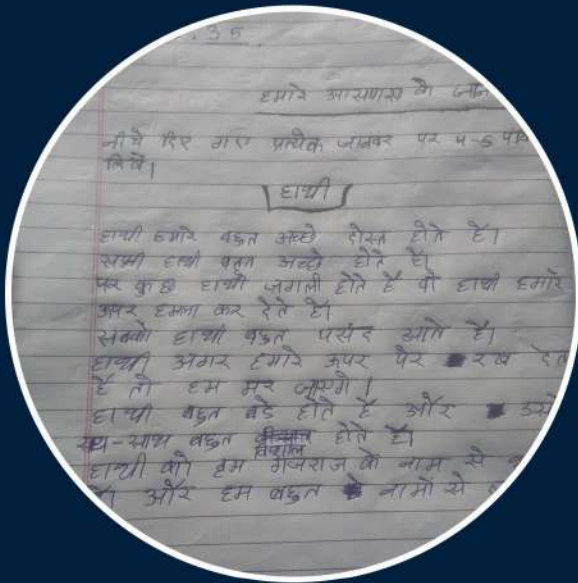 . 35
हमारे आसपास के जान
नीचे दिए गए प्रत्येक जानवर पर 4-5
लिखें।
हाथी
हाथी हमारे बहुत अच्छे दोस्त होते है।
सभी हाथी बहुत अच्छे होते है।
पर कुछ हाथी जंगली होते है वो हाथी हमारे
ऊपर हमला कर देते है।
सबको हाथी बहुत पसंद आते है।
हाथी अगर हमारे ऊपर पैर रख देत
है तो हम मर जाएगे।
हाथी बहुत बडे होते है और उसे
साथ-साथ बहुत विशाल होते है।
हाथी को हम गजराज के नाम से
और हम बहुत नामो से